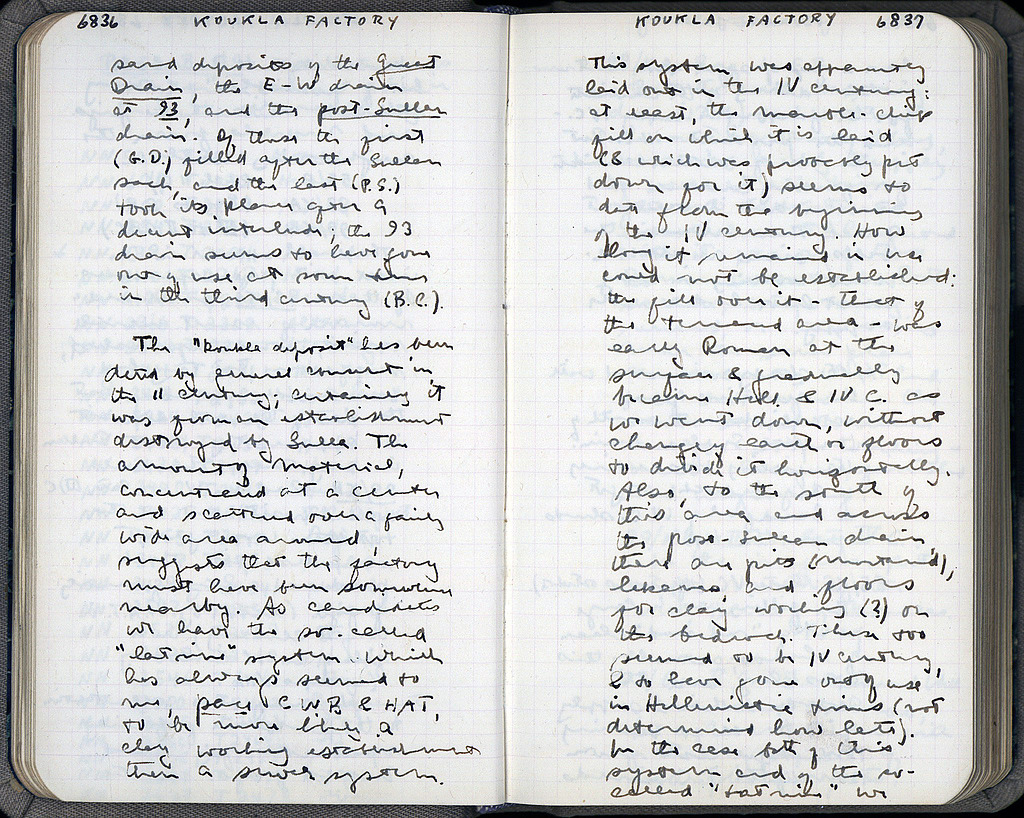 6836 KOUKLA FACTORY
sand deposits of the Great
Drain, the E-W drain
at 93, and the post-Sullan
drain. Of these the first
(G.D.) filled after the Sullan
sack, and the last (P.S.)
took its place after a
decent interlude, the 93
drain seems to have gone
out of use at some time
in the third century (B.C.).
The "koukla deposit" has been
dated by general consent in
the II century; certainly it
was from an establishment
destroyed by Sulla. The
amount of material,
concentrated at a center
and scattered over a fairly
wide area around,
suggests that the factory
must have been somewhere
nearby. As candidates
we have the so-called
"latrine" system which
has always seemed to
me, pace CWB & HAT,
to be more likely a
clay working establishment
than a sewer system.
KOUKLA FACTORY 6837
This system was apparently
laid out in the IV century:
at least, the marble-chip
fill on which it is laid
(& which was probably put
down for it) seems to
date from the beginning
of the IV century. How
long it remained in use
could not be established:
the fill over it - that of
the terraced area - was
early Roman at the
surface & gradually
became Hell. & IV C. as
we went down, without
changing earth or floors
to divide it horizontally.
Also, to the south of
this area and across
the post-Sullan drain
there are pits
likewise and floors
for clay working (?) on
the bedrock. These too
seemed to be IV century,
& to have gone out of use
in Hellenistic times (not
determined how late).
In the case both of this
system and of the so-
called "latrine" we